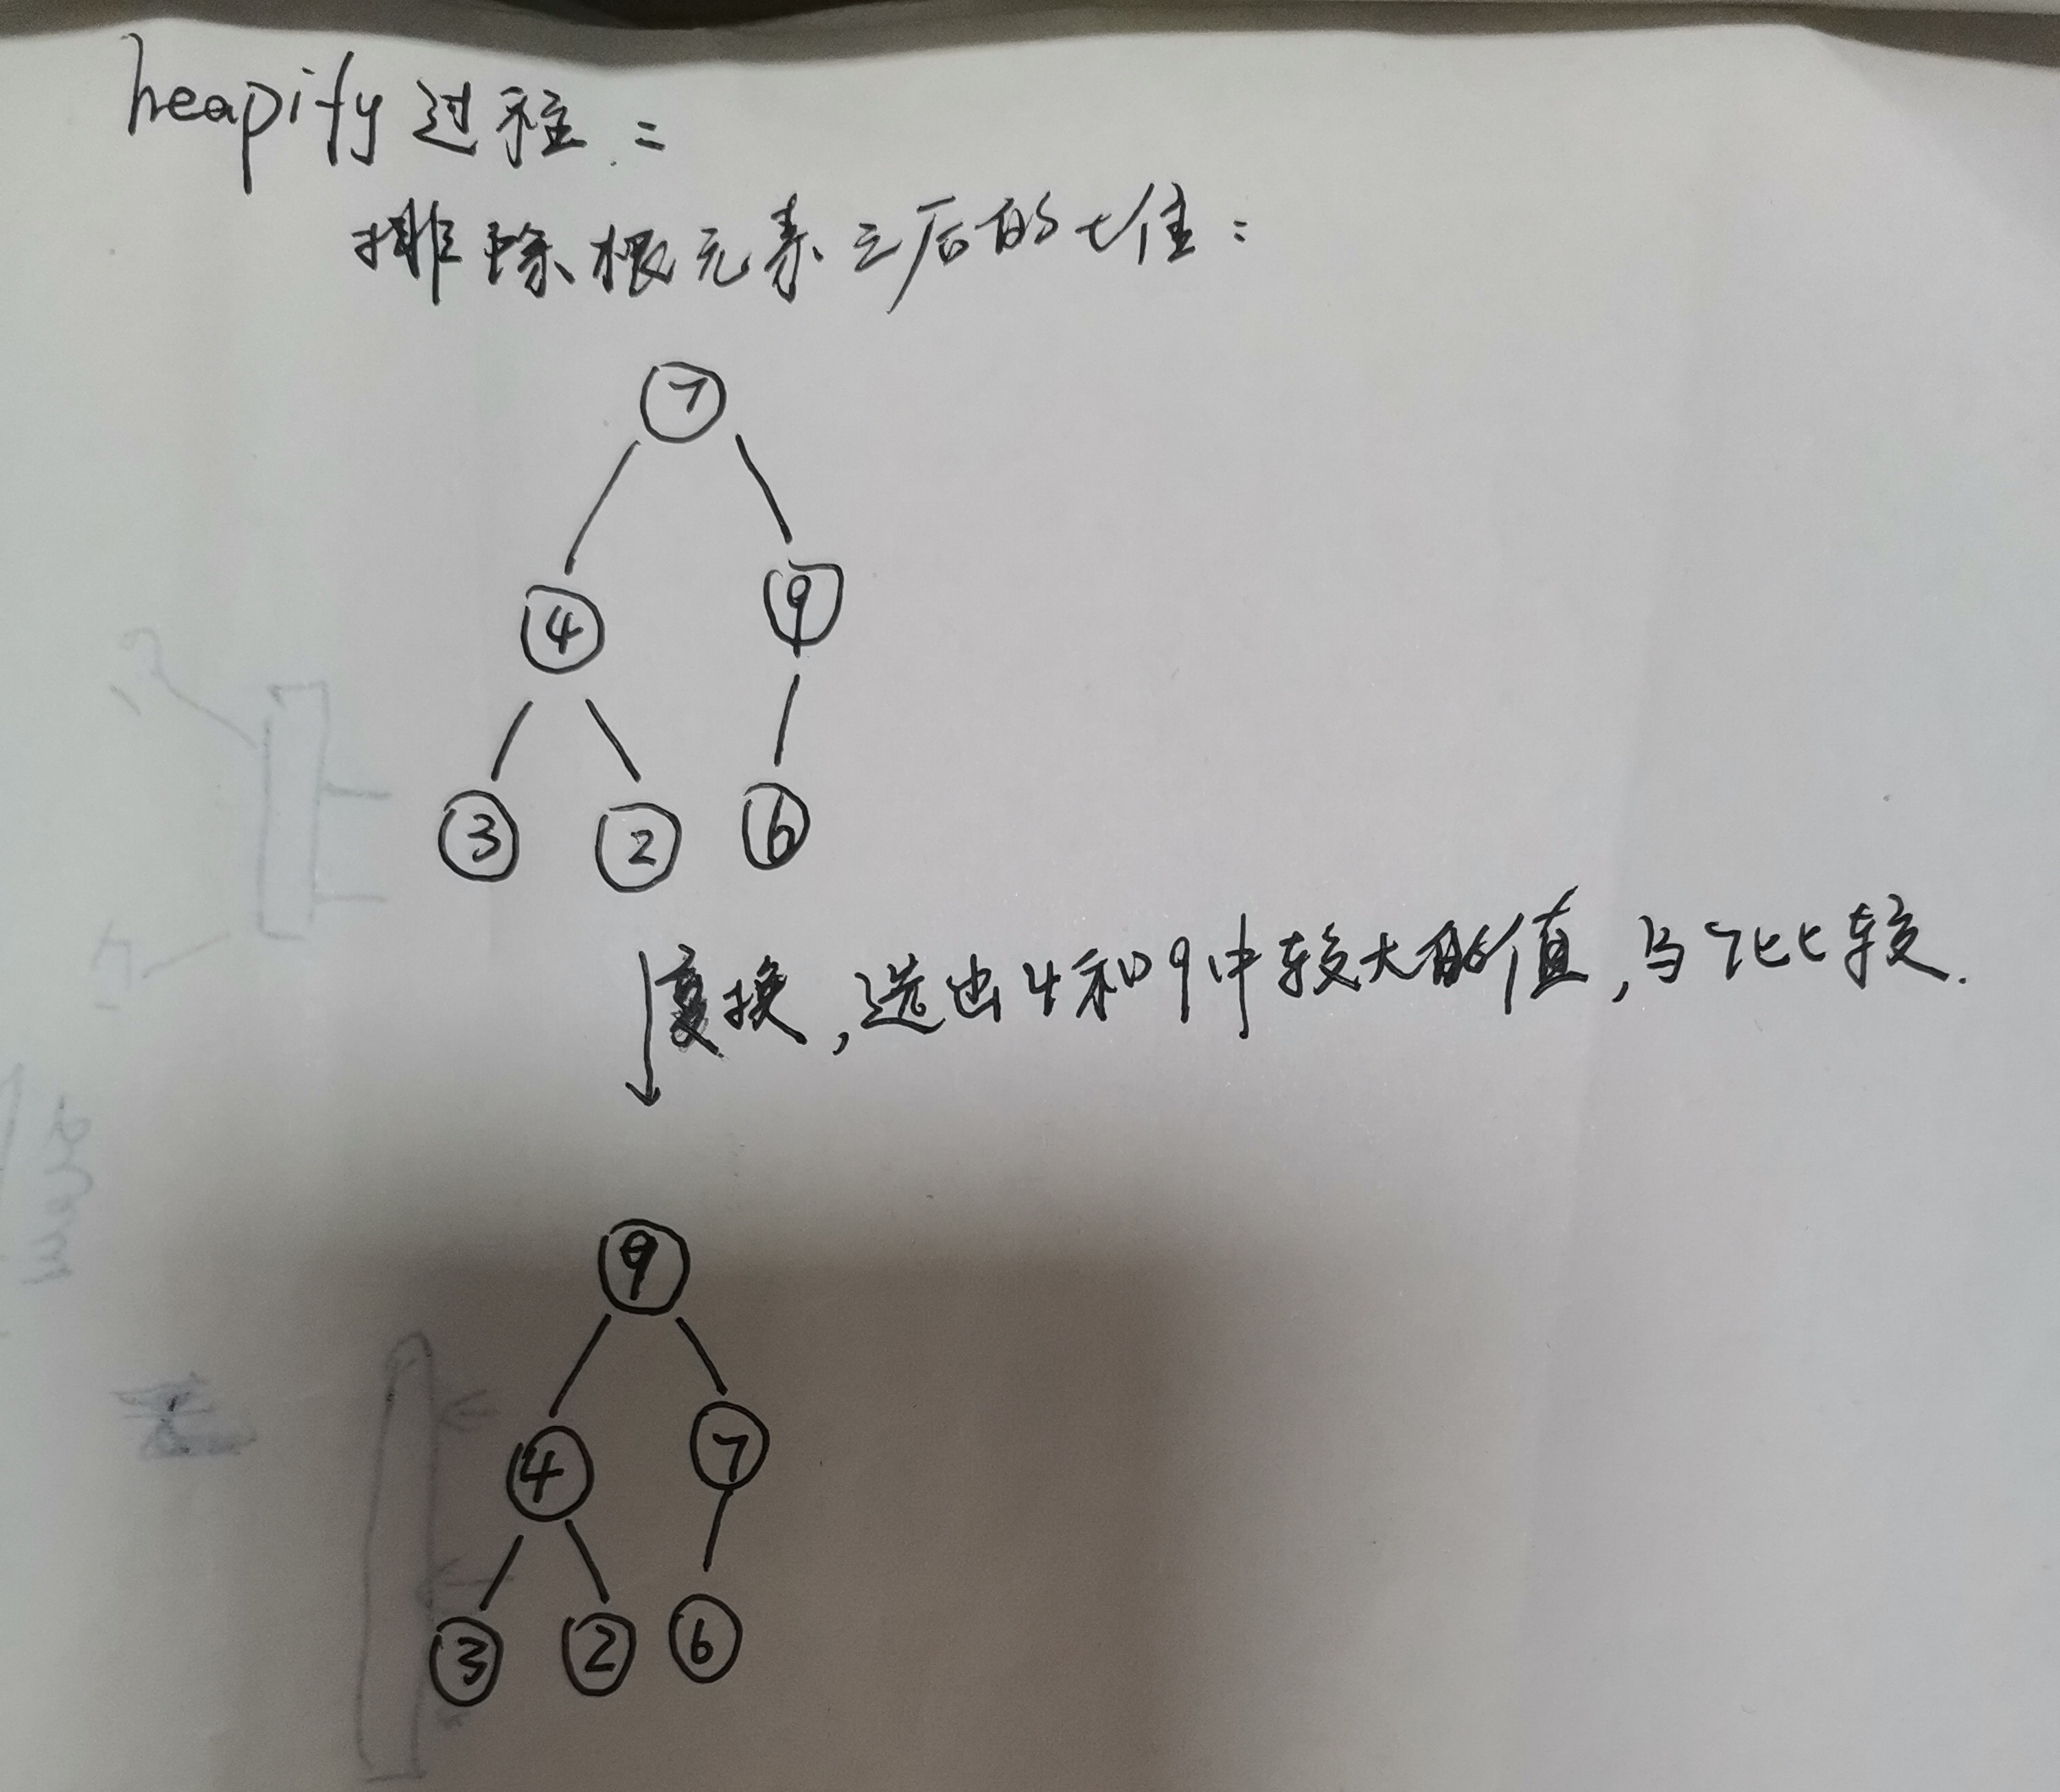 heapify过程:
排除根元素之后的七住:
7
4 9
3 2 6
变换,选出4和9中较大的值,与7比较.
9
4 7
3 2 6